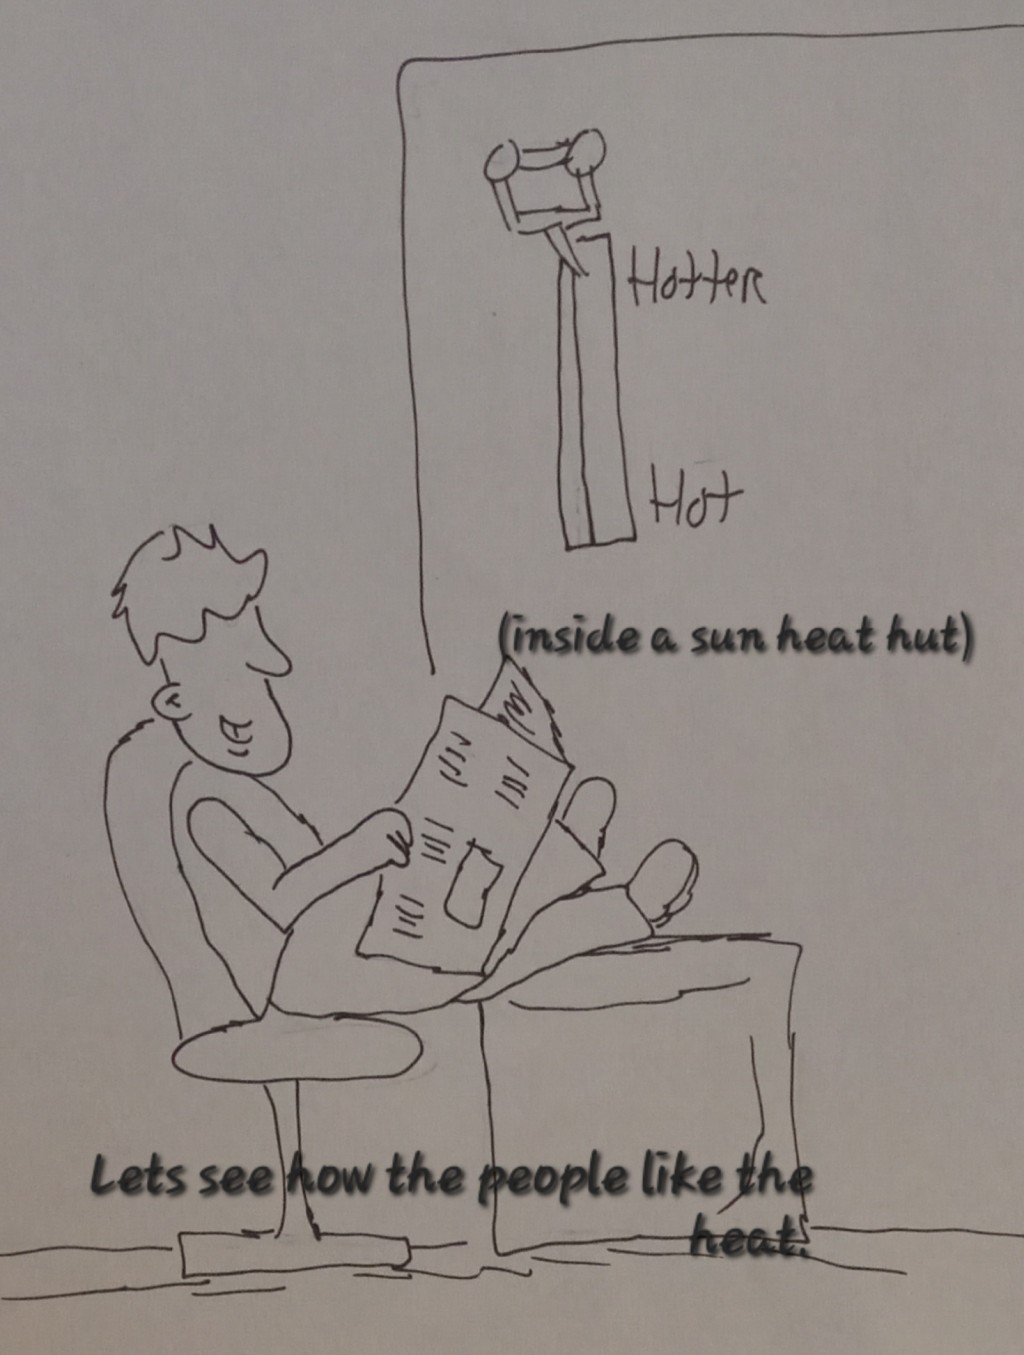 HotteR
Hot
(inside a sun heat hut)
Lets see how the people like the
heat.